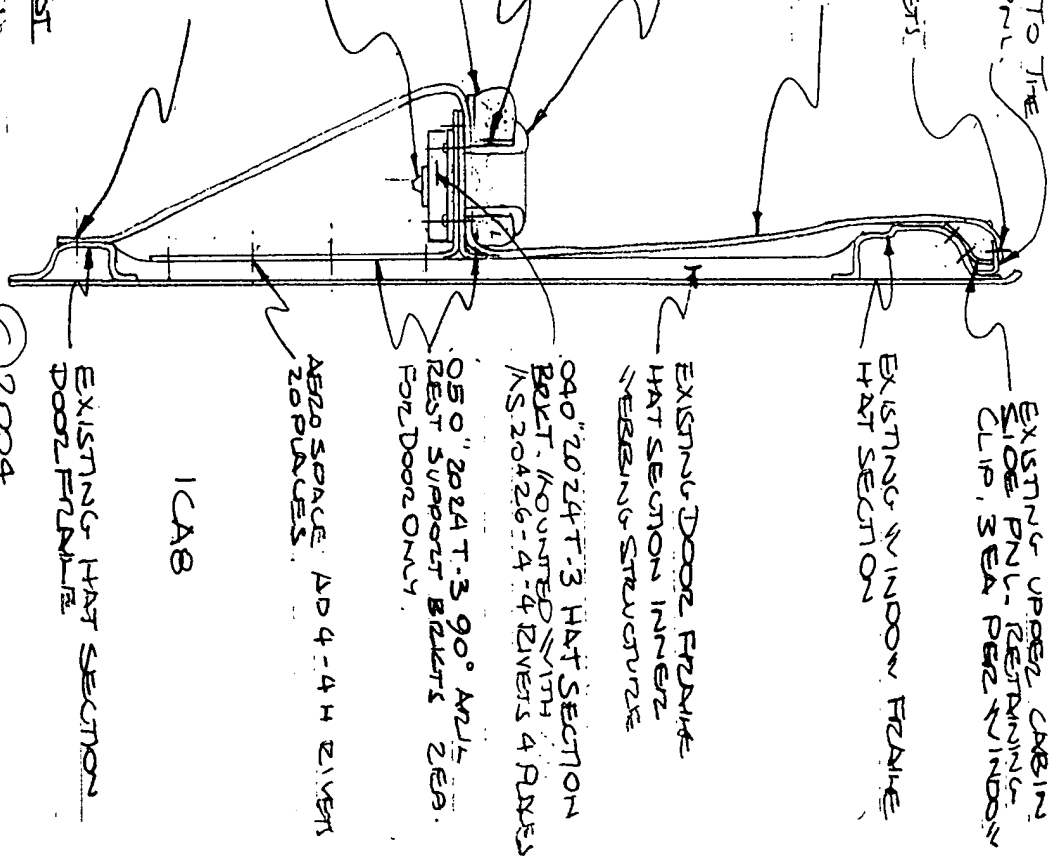 TO THE
PNL.
EXISTING UPPER CABIN
SIDE PNL. RETAINING
CLIP, 3 EA PER WINDOW
EXISTING WINDOW FRAME
HAT SECTION
EXISTING DOOR FRAME
HAT SECTION INNER
WEBBING STRUCTURE
.040" 2024 T-3 HAT SECTION
BRKT. MOUNTED WITH
MS20426-4-4 RIVETS 4 PLACES
.050" 2024 T-3 90° ARM
REST SUPPORT BRKTS 2 EA.
FOR DOOR ONLY.
AEROSPACE AD4-4H RIVETS
20 PLACES.
1CA8
EXISTING HAT SECTION
DOOR FRAME
©2004